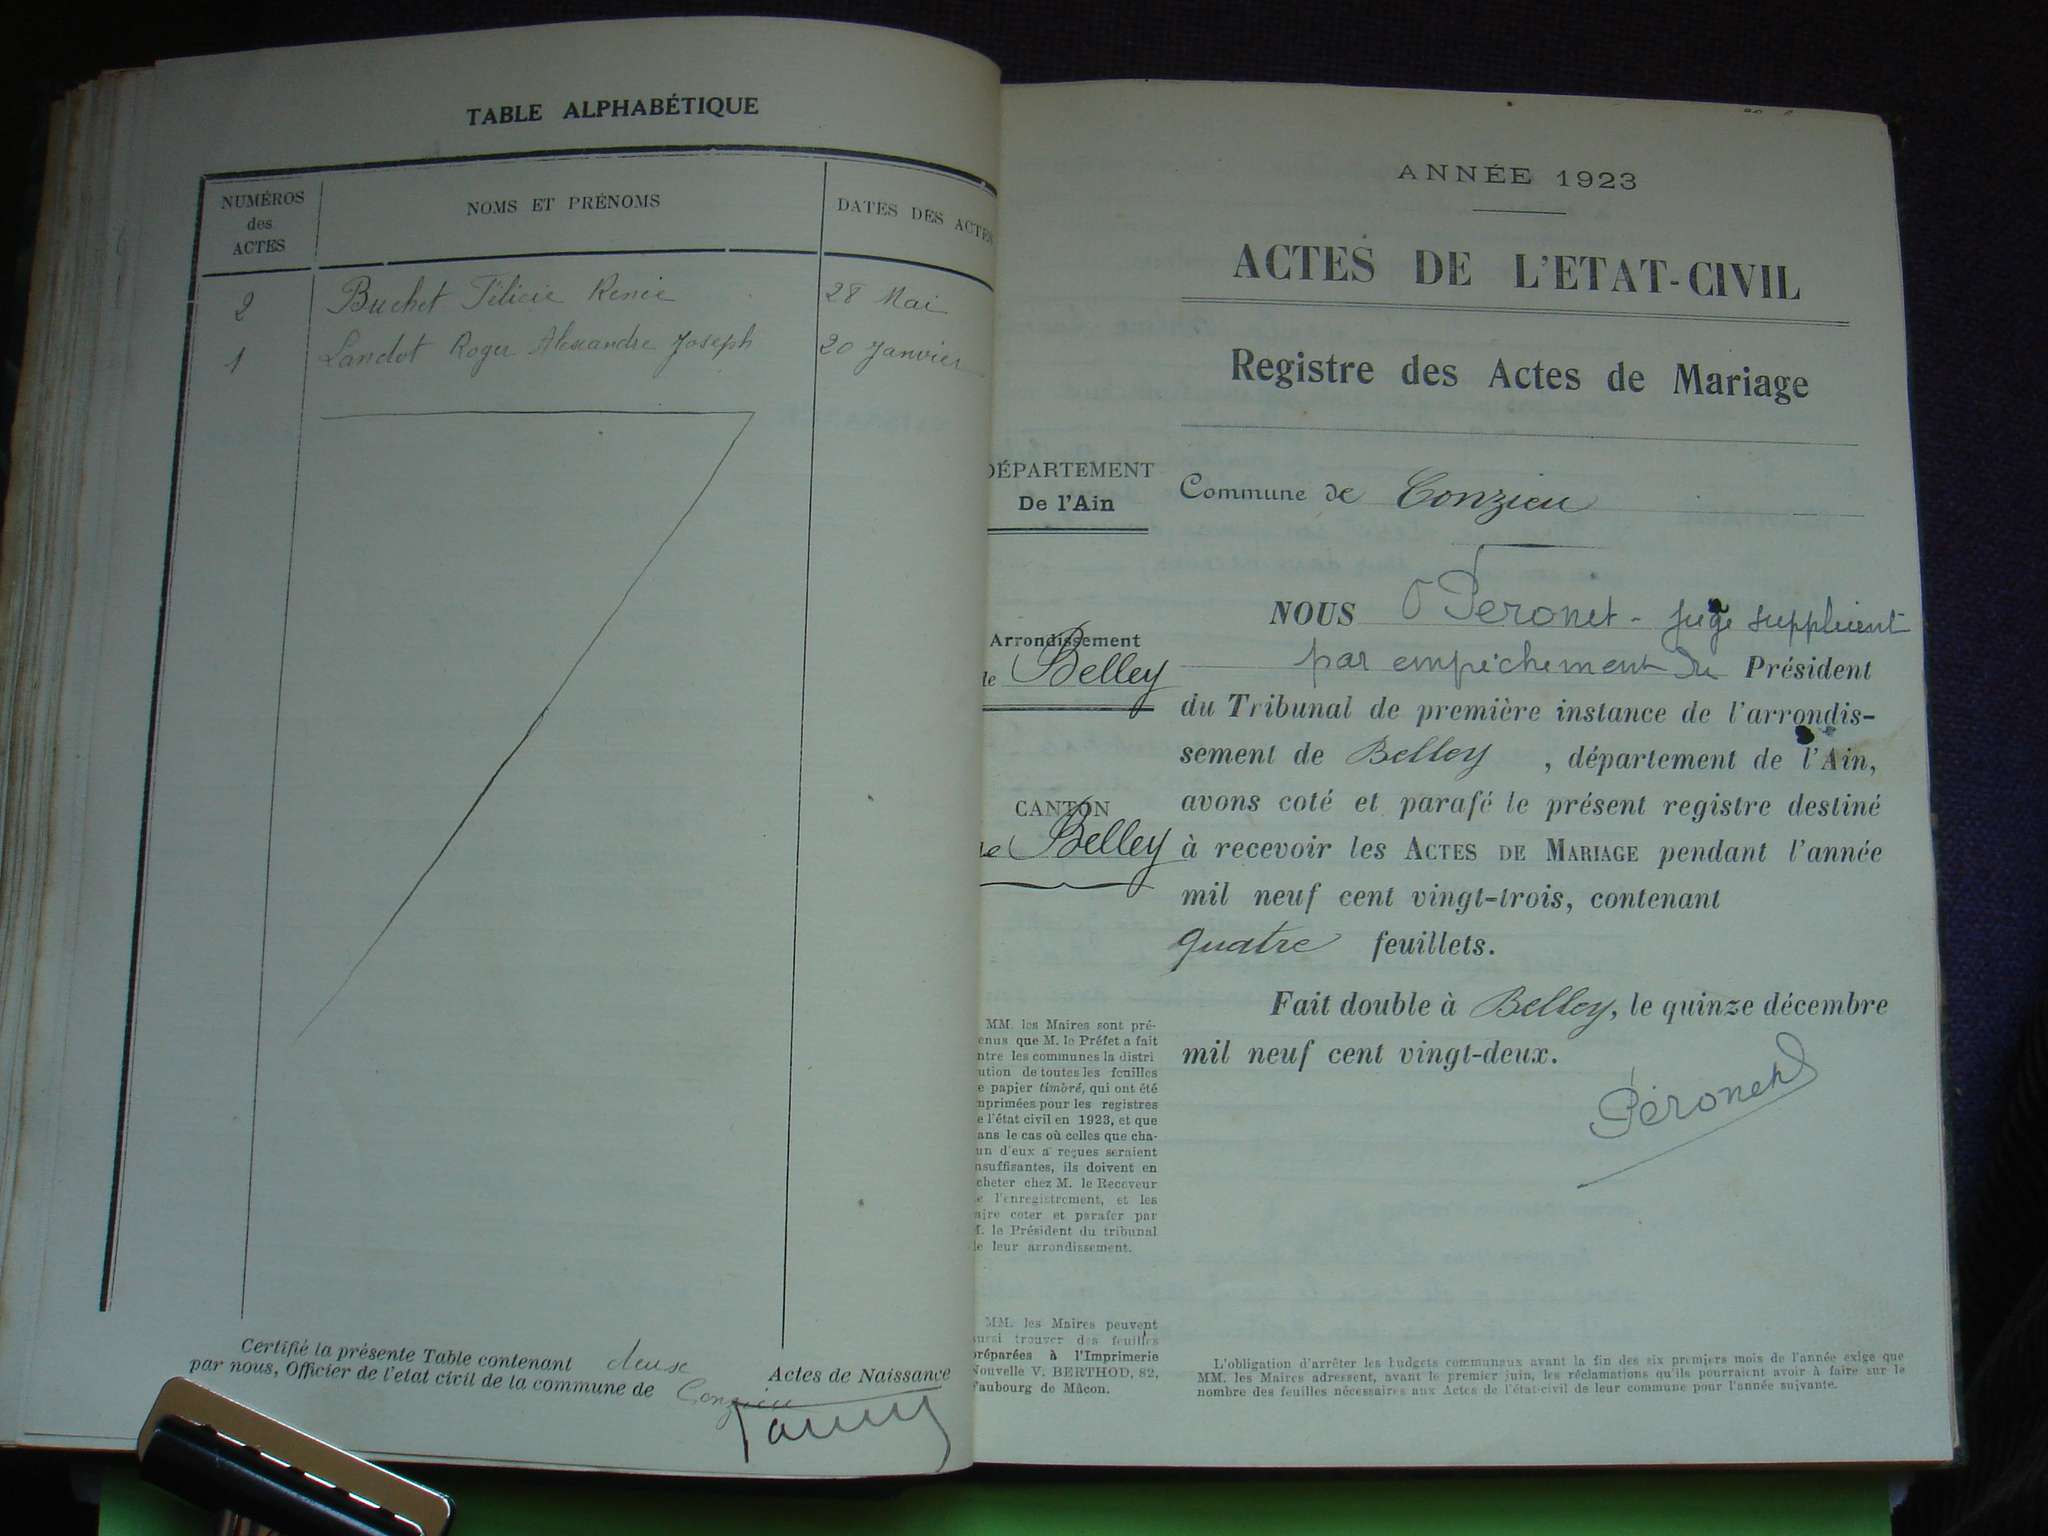 TABLE ALPHABÉTIQUE
NUMÉROS des ACTES
NOMS ET PRÉNOMS
DATES DES ACTES
2 Buchet Félicie Renée 28 Mai
1 Landot Roger Alexandre Joseph 20 Janvier
Certifié la présente Table contenant deux Actes de Naissance
par nous, Officier de l'etat civil de la commune de Conzieu
ANNÉE 1923
ACTES DE L'ETAT-CIVIL
Registre des Actes de Mariage
DÉPARTEMENT
De l'Ain
Arrondissement
de Belley
CANTON
de Belley
MM. les Maires sont pré-
enus que M. le Préfet a fait
ntre les communes la distri
ution de toutes les feuilles
e papier timbré, qui ont été
mprimées pour les registres
e l'état civil en 1923, et que
ans le cas où celles que cha-
un d'eux a reçues seraient
nsuffisantes, ils doivent en
cheter chez M. le Receveur
e l'enregistrement, et les
aire coter et parafer par
M. le Président du tribunal
de leur arrondissement.
MM. les Maires peuvent
aussi trouver des feuilles
préparées à l'Imprimerie
Nouvelle V. BERTHOD, 82,
Faubourg de Mâcon.
Commune de Conzieu
NOUS Péronet - juge suppléant
par empêchement du Président
du Tribunal de première instance de l'arrondis-
sement de Belley , département de l'Ain,
avons coté et parafé le présent registre destiné
à recevoir les ACTES DE MARIAGE pendant l'année
mil neuf cent vingt-trois, contenant
quatre feuillets.
Fait double à Belley, le quinze décembre
mil neuf cent vingt-deux.
Péronet
L'obligation d'arrêter les budgets communaux avant la fin des six premiers mois de l'année exige que
MM. les Maires adressent, avant le premier juin, les réclamations qu'ils pourraient avoir à faire sur le
nombre des feuilles nécessaires aux Actes de l'état-civil de leur commune pour l'année suivante.